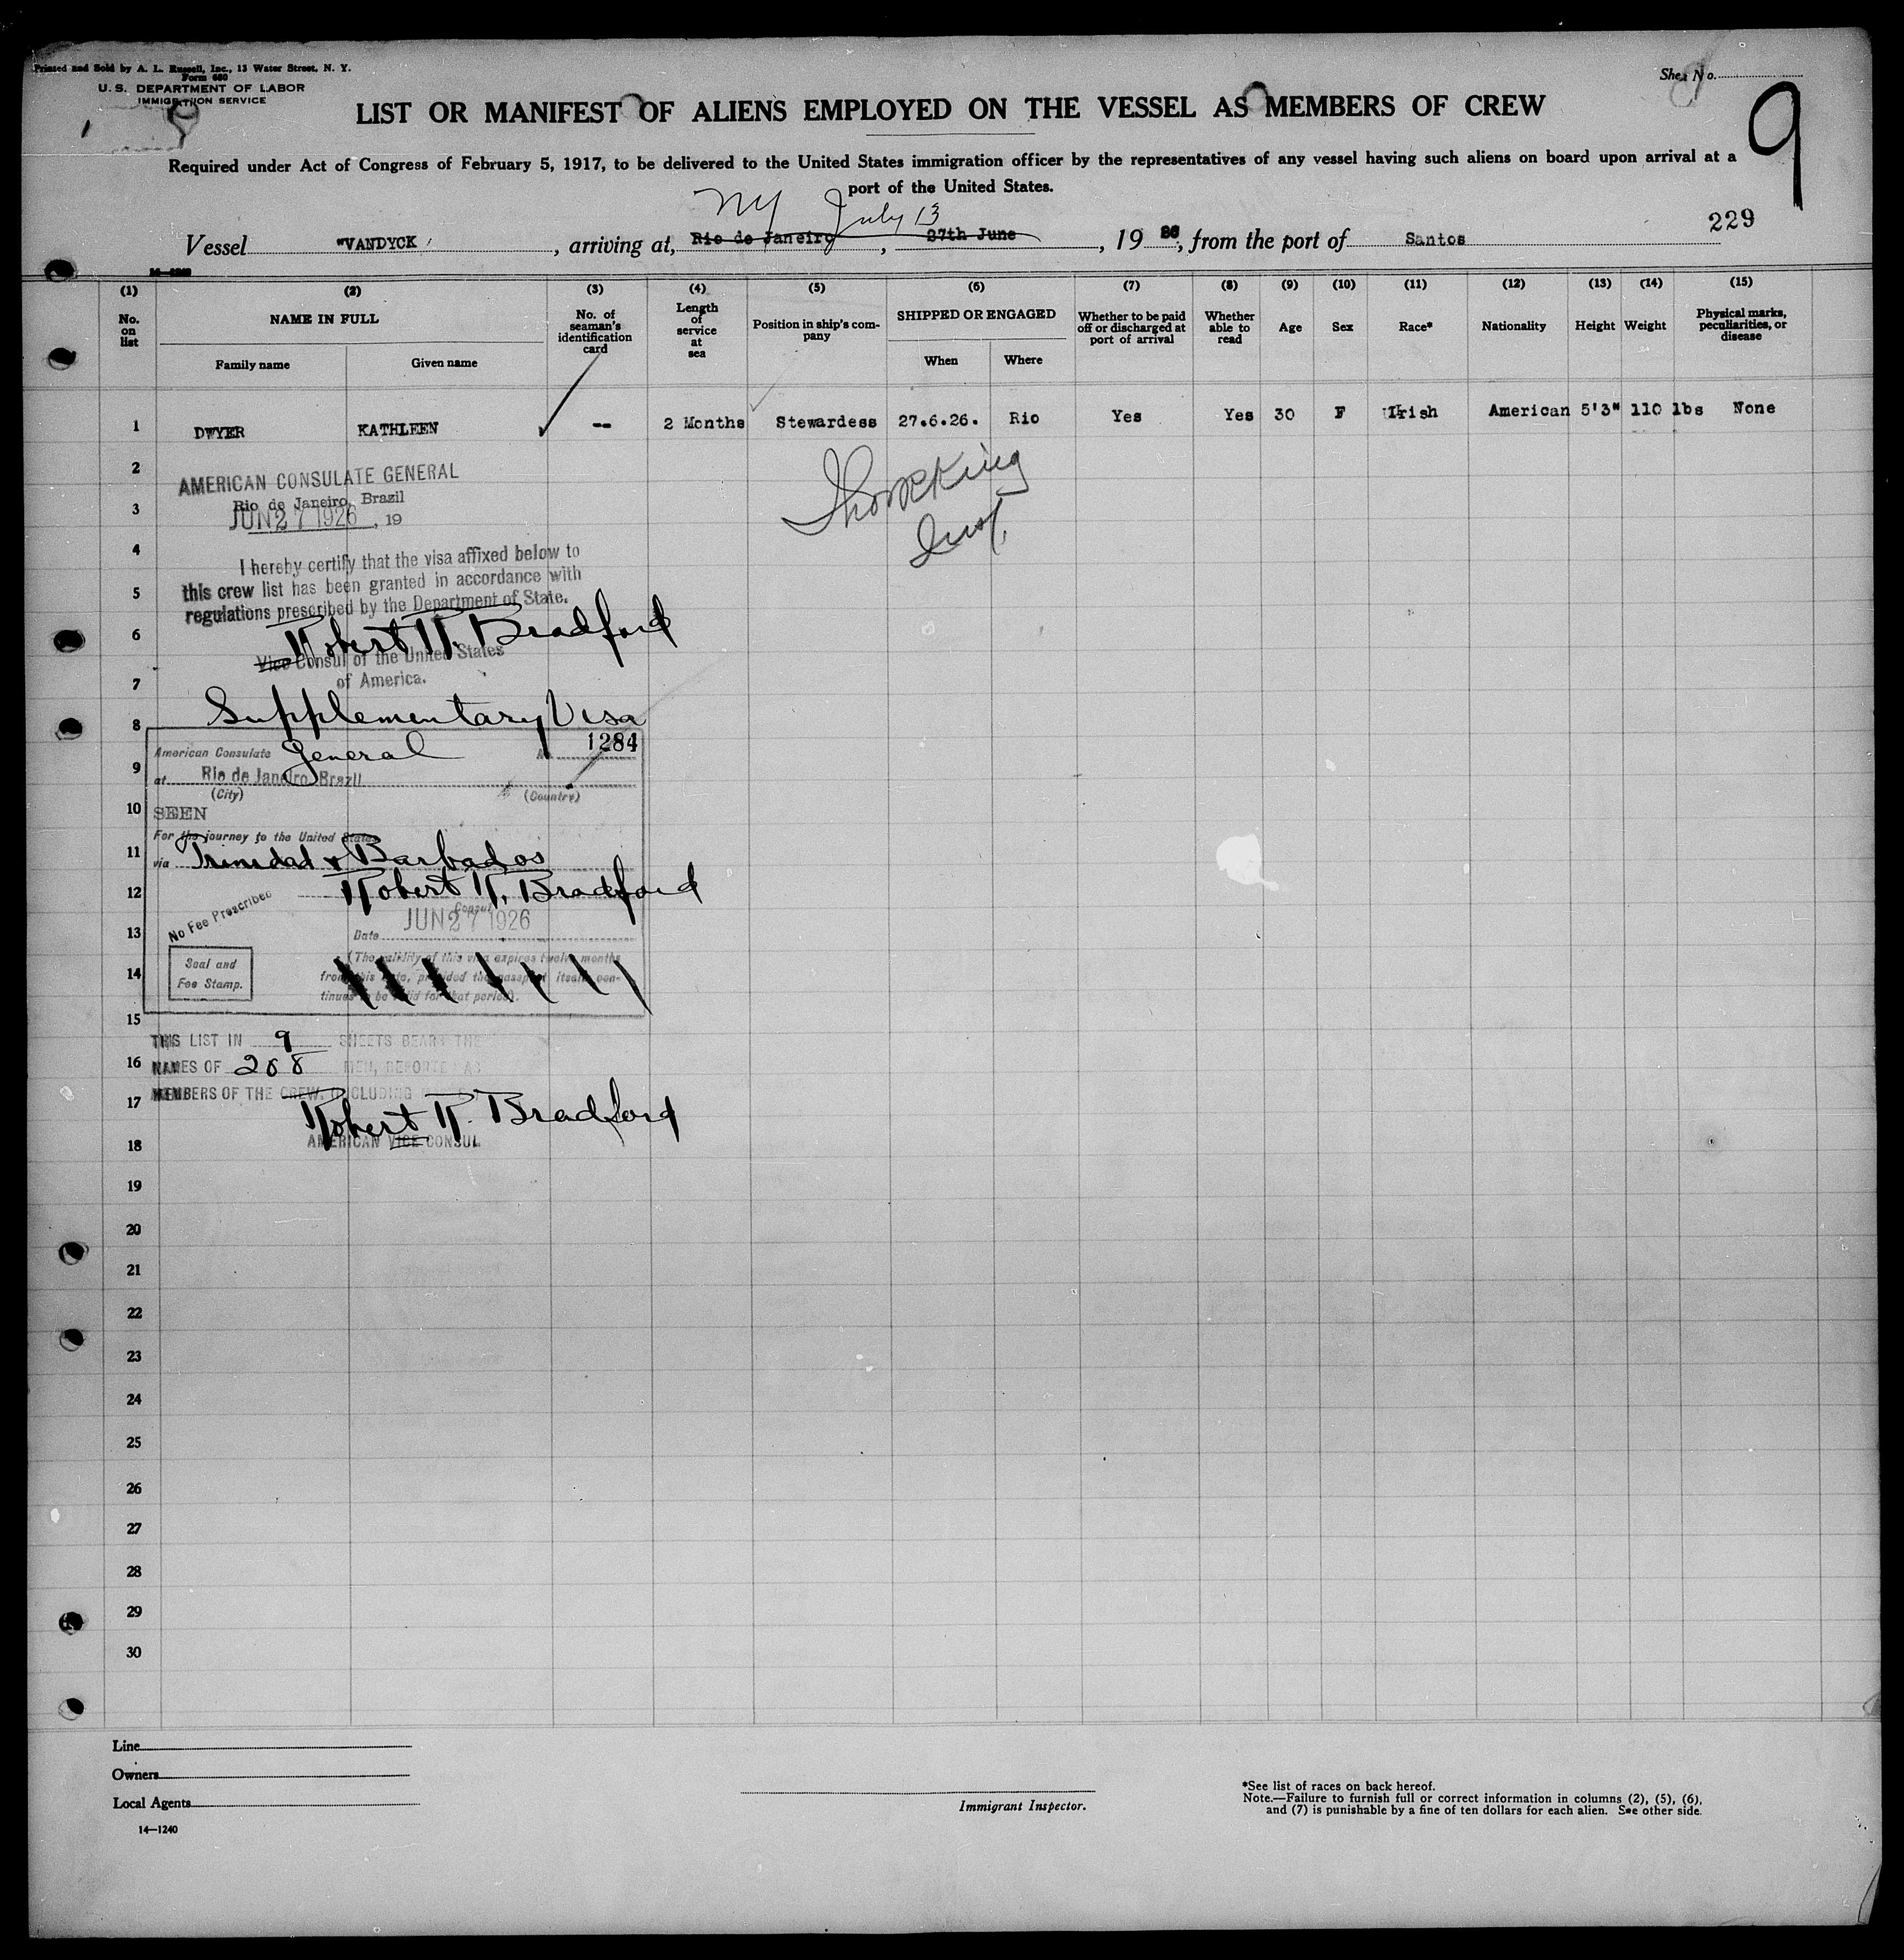 Printed and Sold by A. L. Russell, Inc., 13 Water Street, N. Y.
Form 680
U. S. DEPARTMENT OF LABOR
IMMIGRATION SERVICE
Sheet No.
9
LIST OR MANIFEST OF ALIENS EMPLOYED ON THE VESSEL AS MEMBERS OF CREW
Required under Act of Congress of February 5, 1917, to be delivered to the United States immigration officer by the representatives of any vessel having such aliens on board upon arrival at a
port of the United States.
NY July 13
229
Vessel "VANDYCK, arriving at, Rio de Janeiro, 27th June, 19 26, from the port of Santos
(1) (2) (3) (4) (5) (6) (7) (8) (9) (10) (11) (12) (13) (14) (15)
No. on list NAME IN FULL No. of seaman's identification card Length of service at sea Position in ship's company SHIPPED OR ENGAGED Whether to be paid off or discharged at port of arrival Whether able to read Age Sex Race* Nationality Height Weight Physical marks, peculiarities, or disease
Family name Given name When Where
1 DWYER KATHLEEN -- 2 Months Stewardess 27.6.26. Rio Yes Yes 30 F Irish American 5'3" 110 lbs None
2
AMERICAN CONSULATE GENERAL
Rio de Janeiro, Brazil
3
JUN 27 1926, 19
4
I hereby certify that the visa affixed below to
5
this crew list has been granted in accordance with
regulations prescribed by the Department of State.
6
Robert R. Bradford
Vice Consul of the United States
7
of America.
Supplementary Visa
8
1284
American Consulate General
9
at Rio de Janeiro, Brazil
(City) (Country)
10
SEEN
For the journey to the United States
11
via Trinidad & Barbados
12
Robert R. Bradford
Consul
No Fee Prescribed
JUN 27 1926
13
Date
Seal and
Fee Stamp.
14
(The validity of this visa expires twelve months
from this date, provided the passport itself con-
tinues to be valid for that period).
15
THIS LIST IN 9 SHEETS BEARS THE
16
NAMES OF 208 MEN, REPORTED AS
17
MEMBERS OF THE CREW, INCLUDING
Robert R. Bradford
18
AMERICAN VICE CONSUL
19
20
21
22
23
24
25
26
27
28
29
30
Line
Owners
Local Agents
14—1240
Immigrant Inspector.
*See list of races on back hereof.
Note.—Failure to furnish full or correct information in columns (2), (5), (6),
and (7) is punishable by a fine of ten dollars for each alien. See other side.